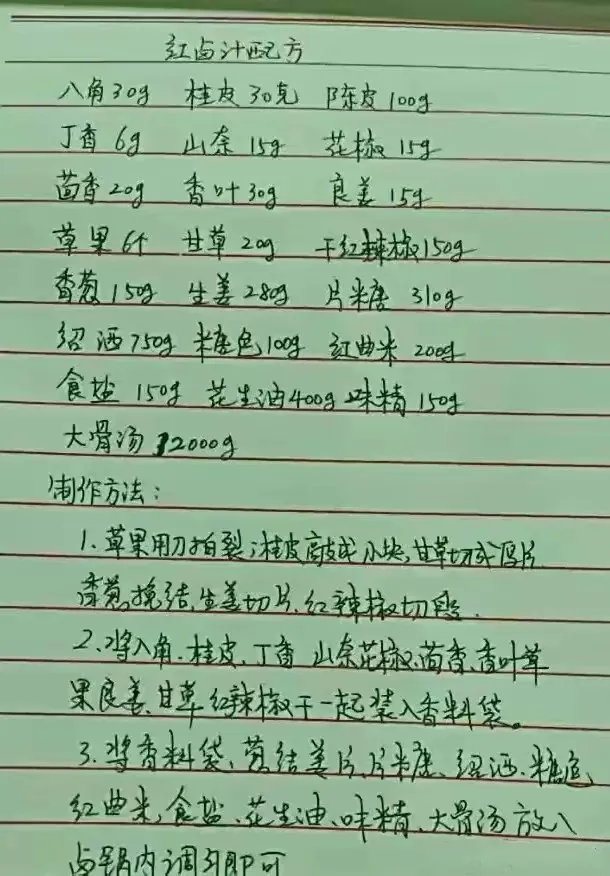 红卤汁配方
八角30g 桂皮30克 陈皮100g
丁香6g 山奈15g 花椒15g
茴香20g 香叶30g 良姜15g
草果6个 甘草20g 干红辣椒150g
香葱150g 生姜280g 片糖310g
绍酒750g 糖色100g 红曲米200g
食盐150g 花生油400g 味精150g
大骨汤12000g
制作方法:
1.草果用刀拍裂,桂皮敲成小块,甘草切成厚片
香葱挽结,生姜切片,红辣椒切段.
2.将八角、桂皮、丁香 山奈花椒、茴香、香叶草
果良姜、甘草红辣椒干一起装入香料袋。
3.将香料袋、葱结姜片、片糖、绍酒、糖色
红曲米,食盐、花生油、味精、大骨汤放入
卤锅内调匀即可